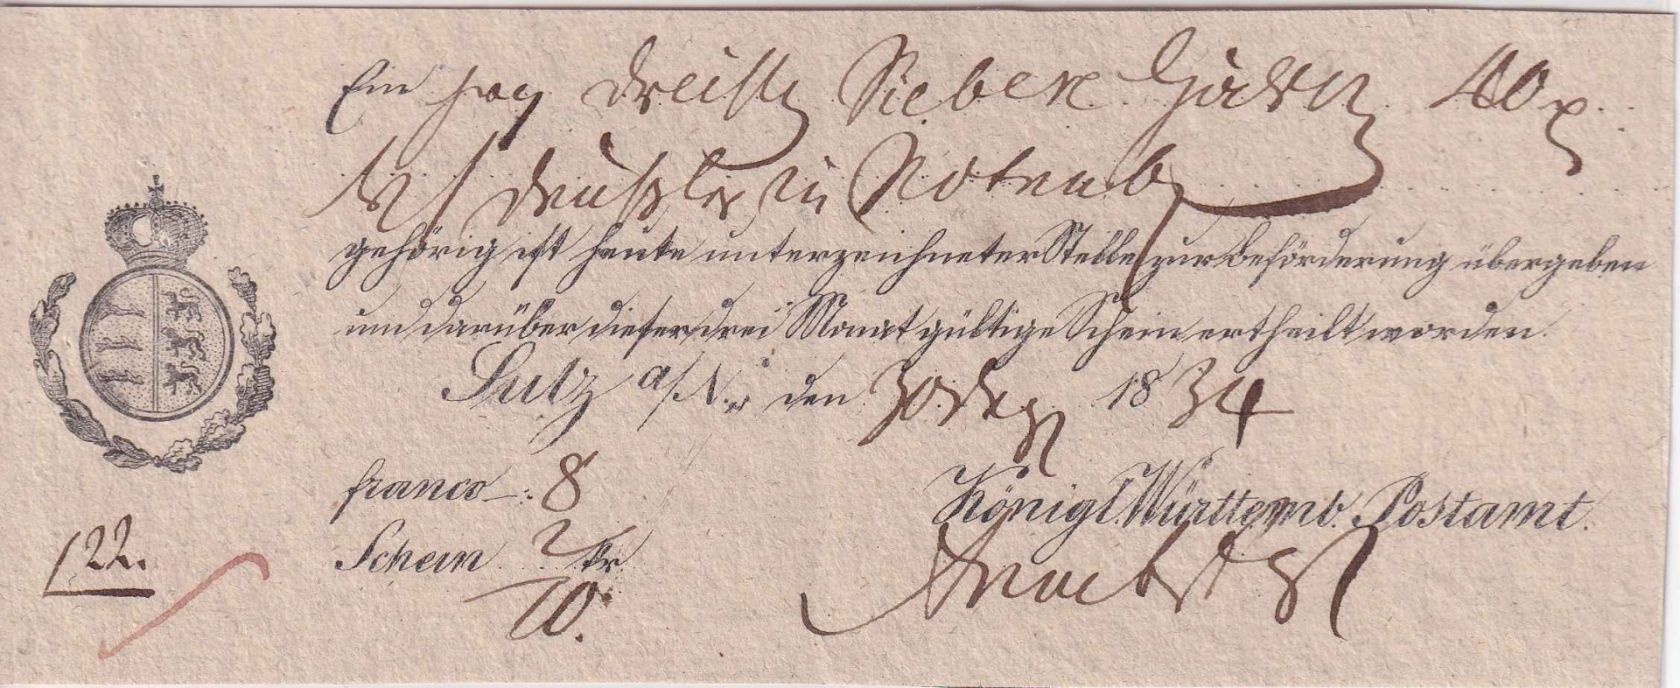 Ein
dreißig Sieben Gulden 40 x
in Rotenb
gehörig ist heute unterzeichneter Stelle zur Beförderung übergeben
und darüber dieser drei Monat gültige Schein ertheilt worden.
Sulz a/N. den 30 Dez 1834
franco 8
Königl. Württemb. Postamt.
122.
Schein 2 kr
10.